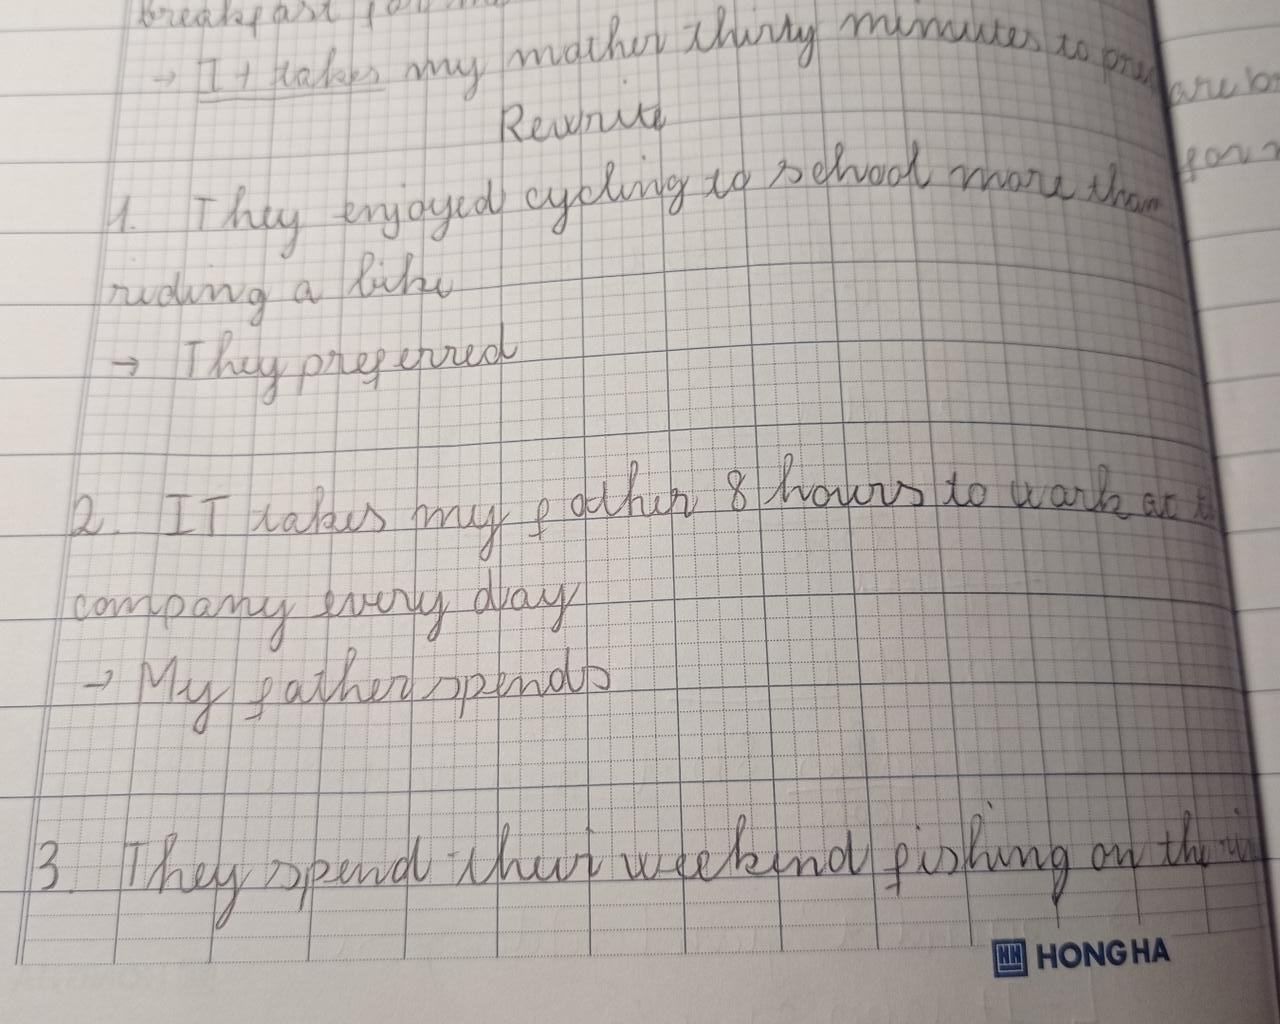 breakfast for
→ It takes my mother thirty minutes to prepare b
Rewrite
for
1. They enjoyed cycling to school more than
riding a bike
→ They preferred
2. IT takes my father 8 hours to work at
company every day
→ My father spends
3. They spend their weekend fishing on the
HONG HA